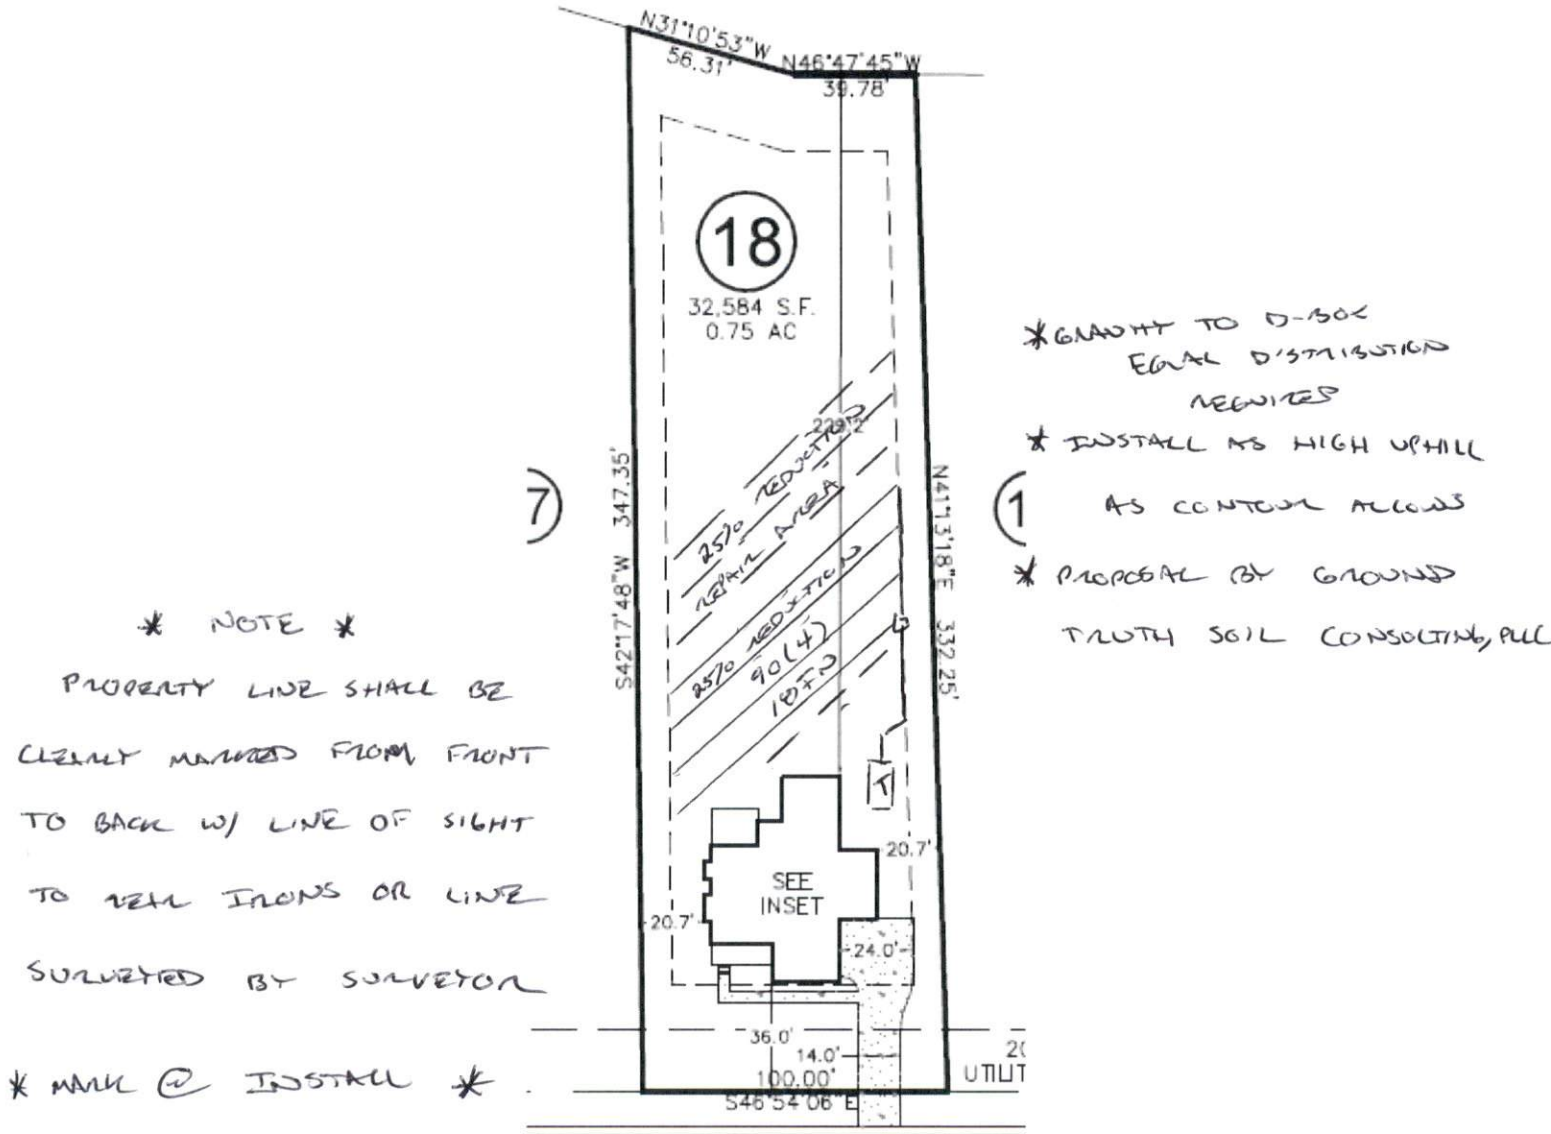 N31°10'53"W
56.31'
N46°47'45"W
39.78'
18
32,584 S.F.
0.75 AC
229.2'
25% REDUCTION
REPAIR AREA
25% REDUCTION
90(4)
S42°17'48"W 347.35'
N41°13'18"E 332.25'
7
1
T
SEE
INSET
20.7'
20.7'
24.0'
36.0'
14.0'
100.00'
S46°54'06"E
20
UTILIT
* NOTE *
PROPERTY LINE SHALL BE
CLEARLY MARKED FROM FRONT
TO BACK W/ LINE OF SIGHT
TO REAR IRONS OR LINE
SURVEYED BY SURVEYOR
* MARK @ INSTALL *
* GRAVITY TO D-BOX
EQUAL DISTRIBUTION
REQUIRED
* INSTALL AS HIGH UPHILL
AS CONTOUR ALLOWS
* PROPOSAL BY GROUND
TRUTH SOIL CONSULTING, PLLC